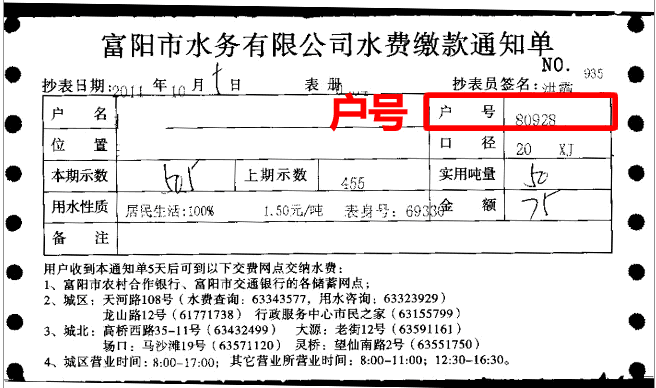 富阳市水务有限公司水费缴款通知单
NO. 935
抄表日期:2011 年 10 月 日 表 册 抄表员签名:
户号
户 名 户 号 80928
位 置 口 径 20 XJ
本期示数 505 上期示数 455 实用吨量 50
用水性质 居民生活:100% 1.50元/吨 表身号: 69330 金 额 75
备 注
用户收到本通知单5天后可到以下交费网点交纳水费:
1、富阳市农村合作银行、富阳市交通银行的各储蓄网点;
2、城区: 天河路108号(水费查询: 63343577, 用水咨询: 63323929)
龙山路12号(61771738) 行政服务中心市民之家(63155799)
3、城北: 高桥西路35-11号(63432499) 大源: 老街12号(63591161)
场口: 马沙滩19号(63571120) 灵桥: 望仙南路2号(63551750)
4、城区营业时间: 8:00-17:00; 其它营业所营业时间: 8:00-11:00; 12:30-16:30。